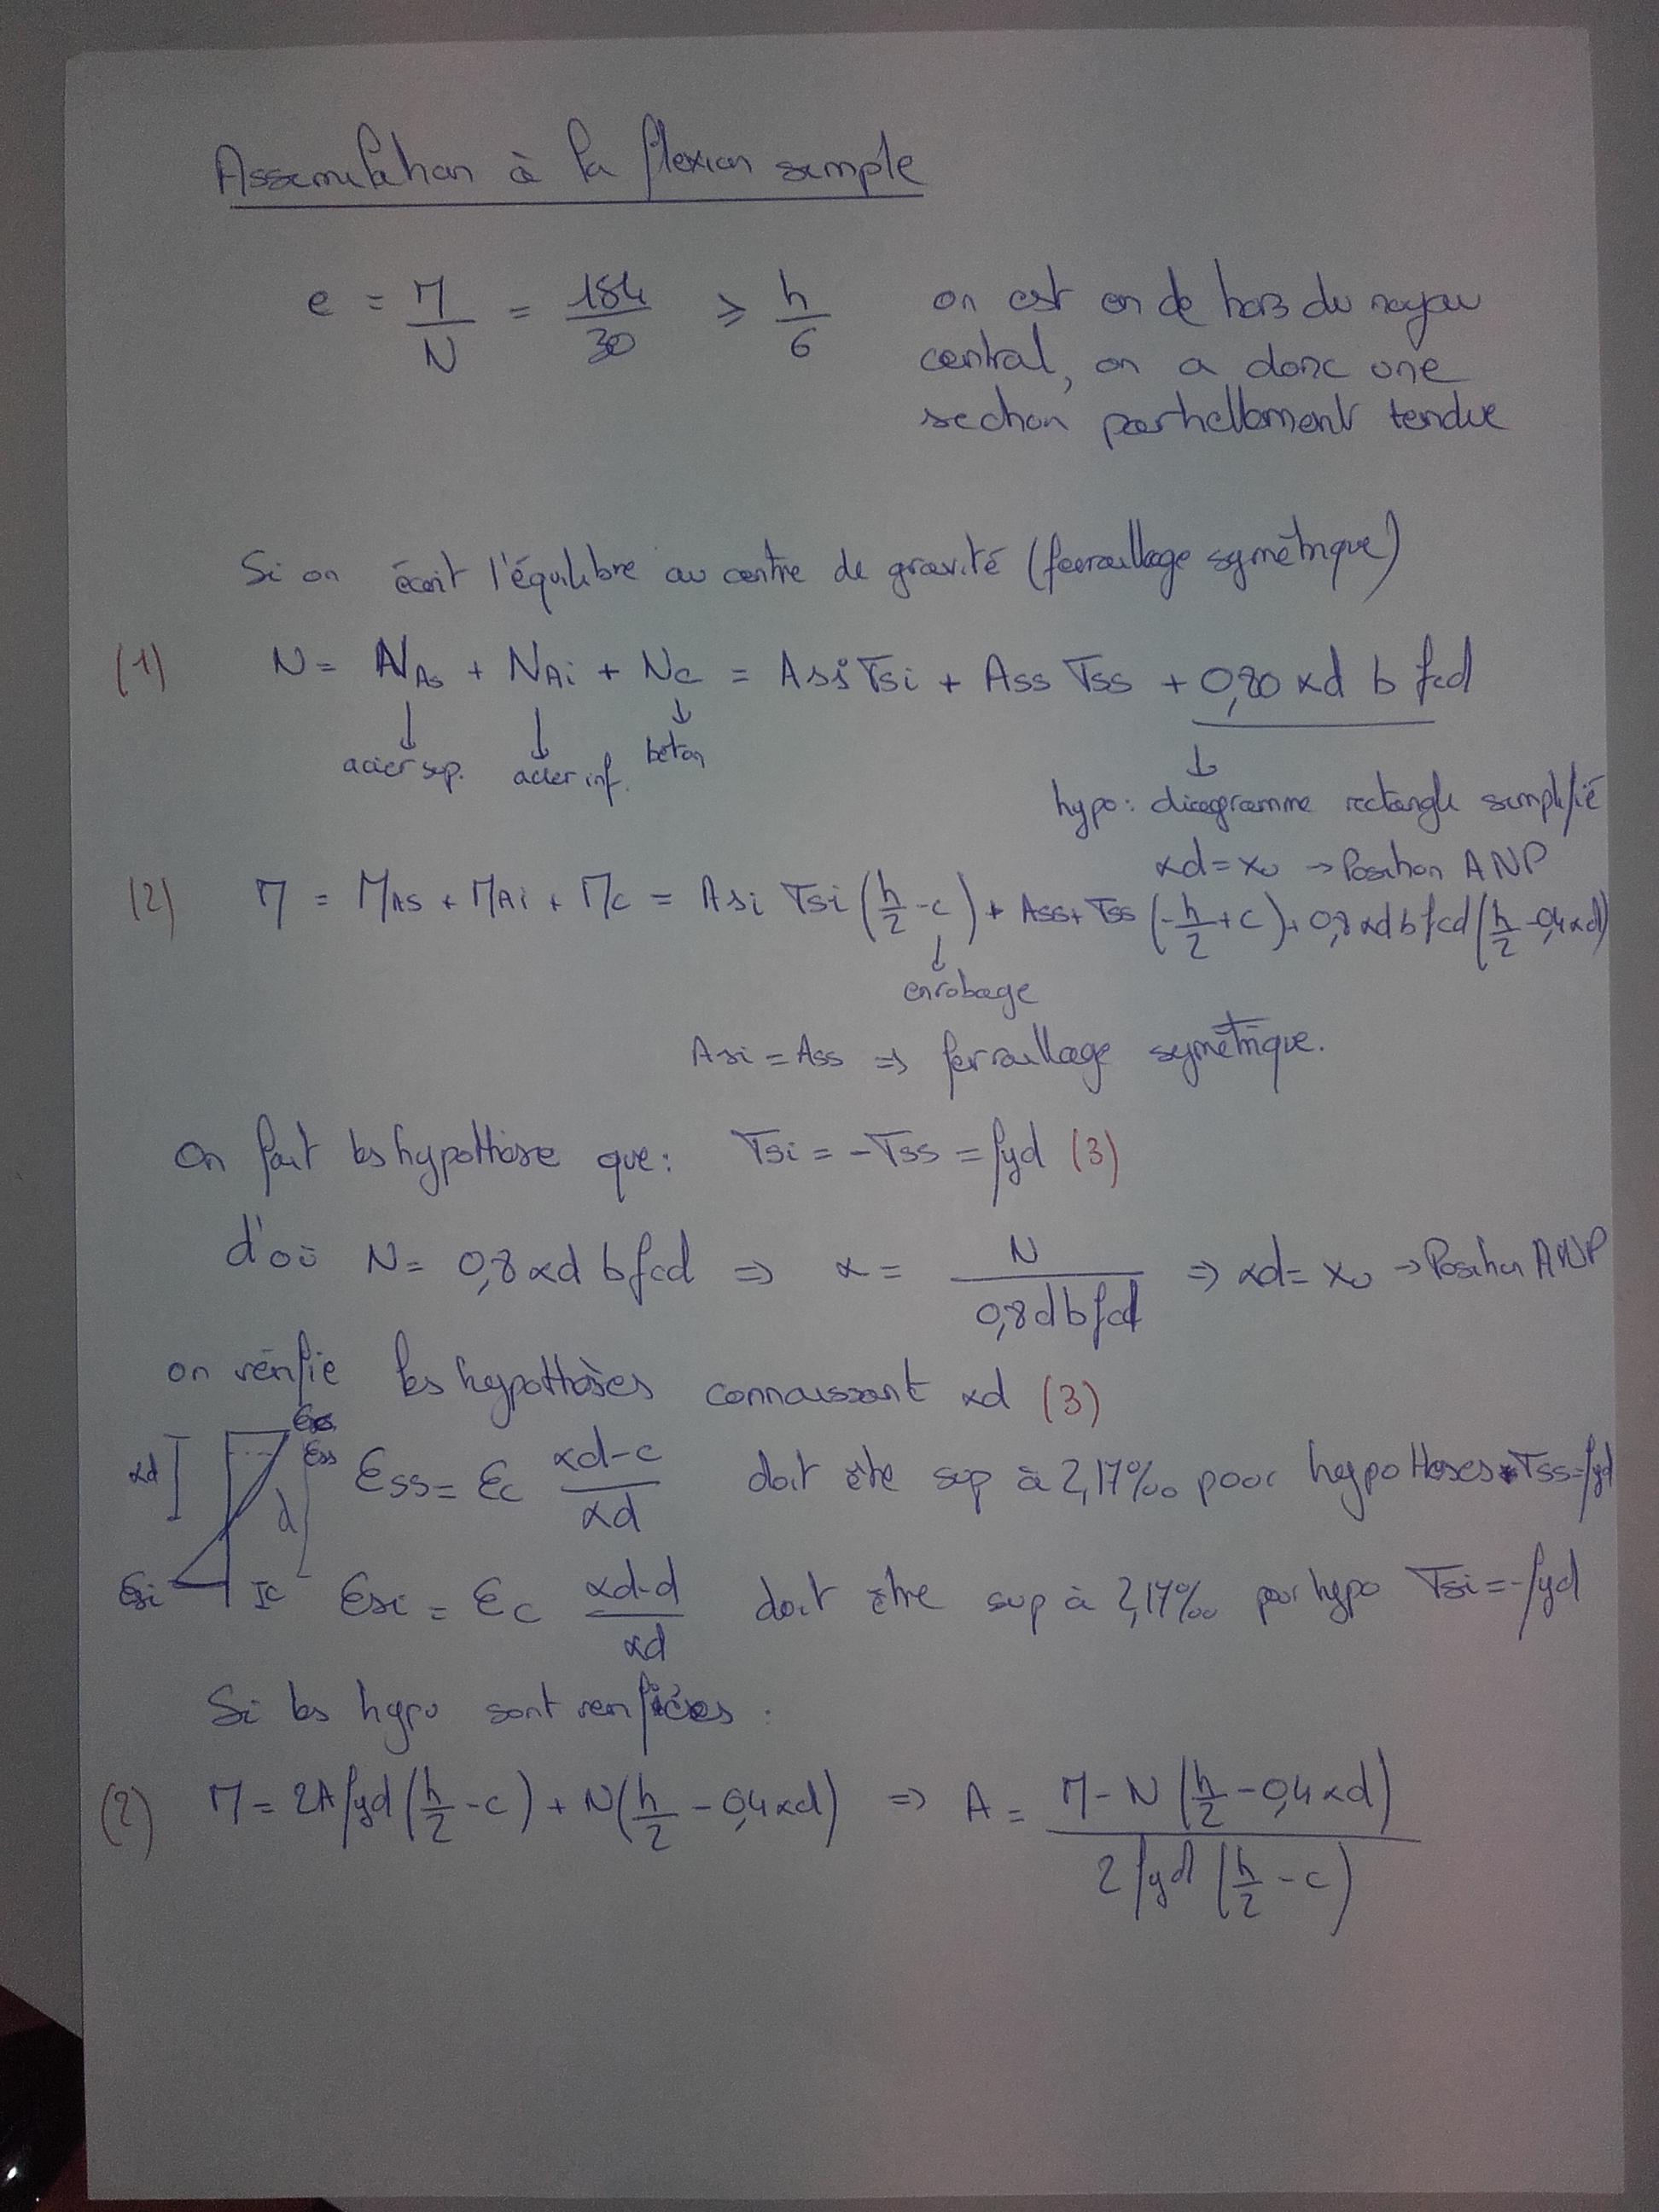 Assimilation à la flexion simple
e = M/N = 184/30 ⩾ h/6 on est en de hors du noyau
central, on a donc une
section partiellement tendue
Si on écrit l'équilibre au centre de gravité (ferraillage symétrique)
(1) N = NAs + NAi + Nc = Asi σsi + Ass σss + 0,80 αd b fcd
acier sup. acier inf. béton
hypo: diagramme rectangle simplifié
αd = xu → Position ANP
(2) M = MAs + MAi + Mc = Asi σsi (h/2 - c) + Ass + σss (-h/2 + c) + 0,8 αd b fcd (h/2 - 0,4 αd)
enrobage
Asi = Ass => ferraillage symétrique.
On fait les hypothèse que: σsi = -σss = fyd (3)
d'où N = 0,8 αd b fcd => α = N/(0,8 d b fcd) => αd = xu → Position ANP
on vérifie les hypothèses connaissant αd (3)
εc
αd εss εss = εc (αd-c)/αd doit être sup à 2,17‰ pour hypothèses σss=fyd
d
εsi Ic εsi = εc (αd-d)/αd doit être sup à 2,17‰ pour hypo σsi = -fyd
Si les hypo sont vérifiées :
(2) M = 2A fyd (h/2 - c) + N (h/2 - 0,4 αd) => A = (M - N (h/2 - 0,4 αd))/(2 fyd (h/2 - c))